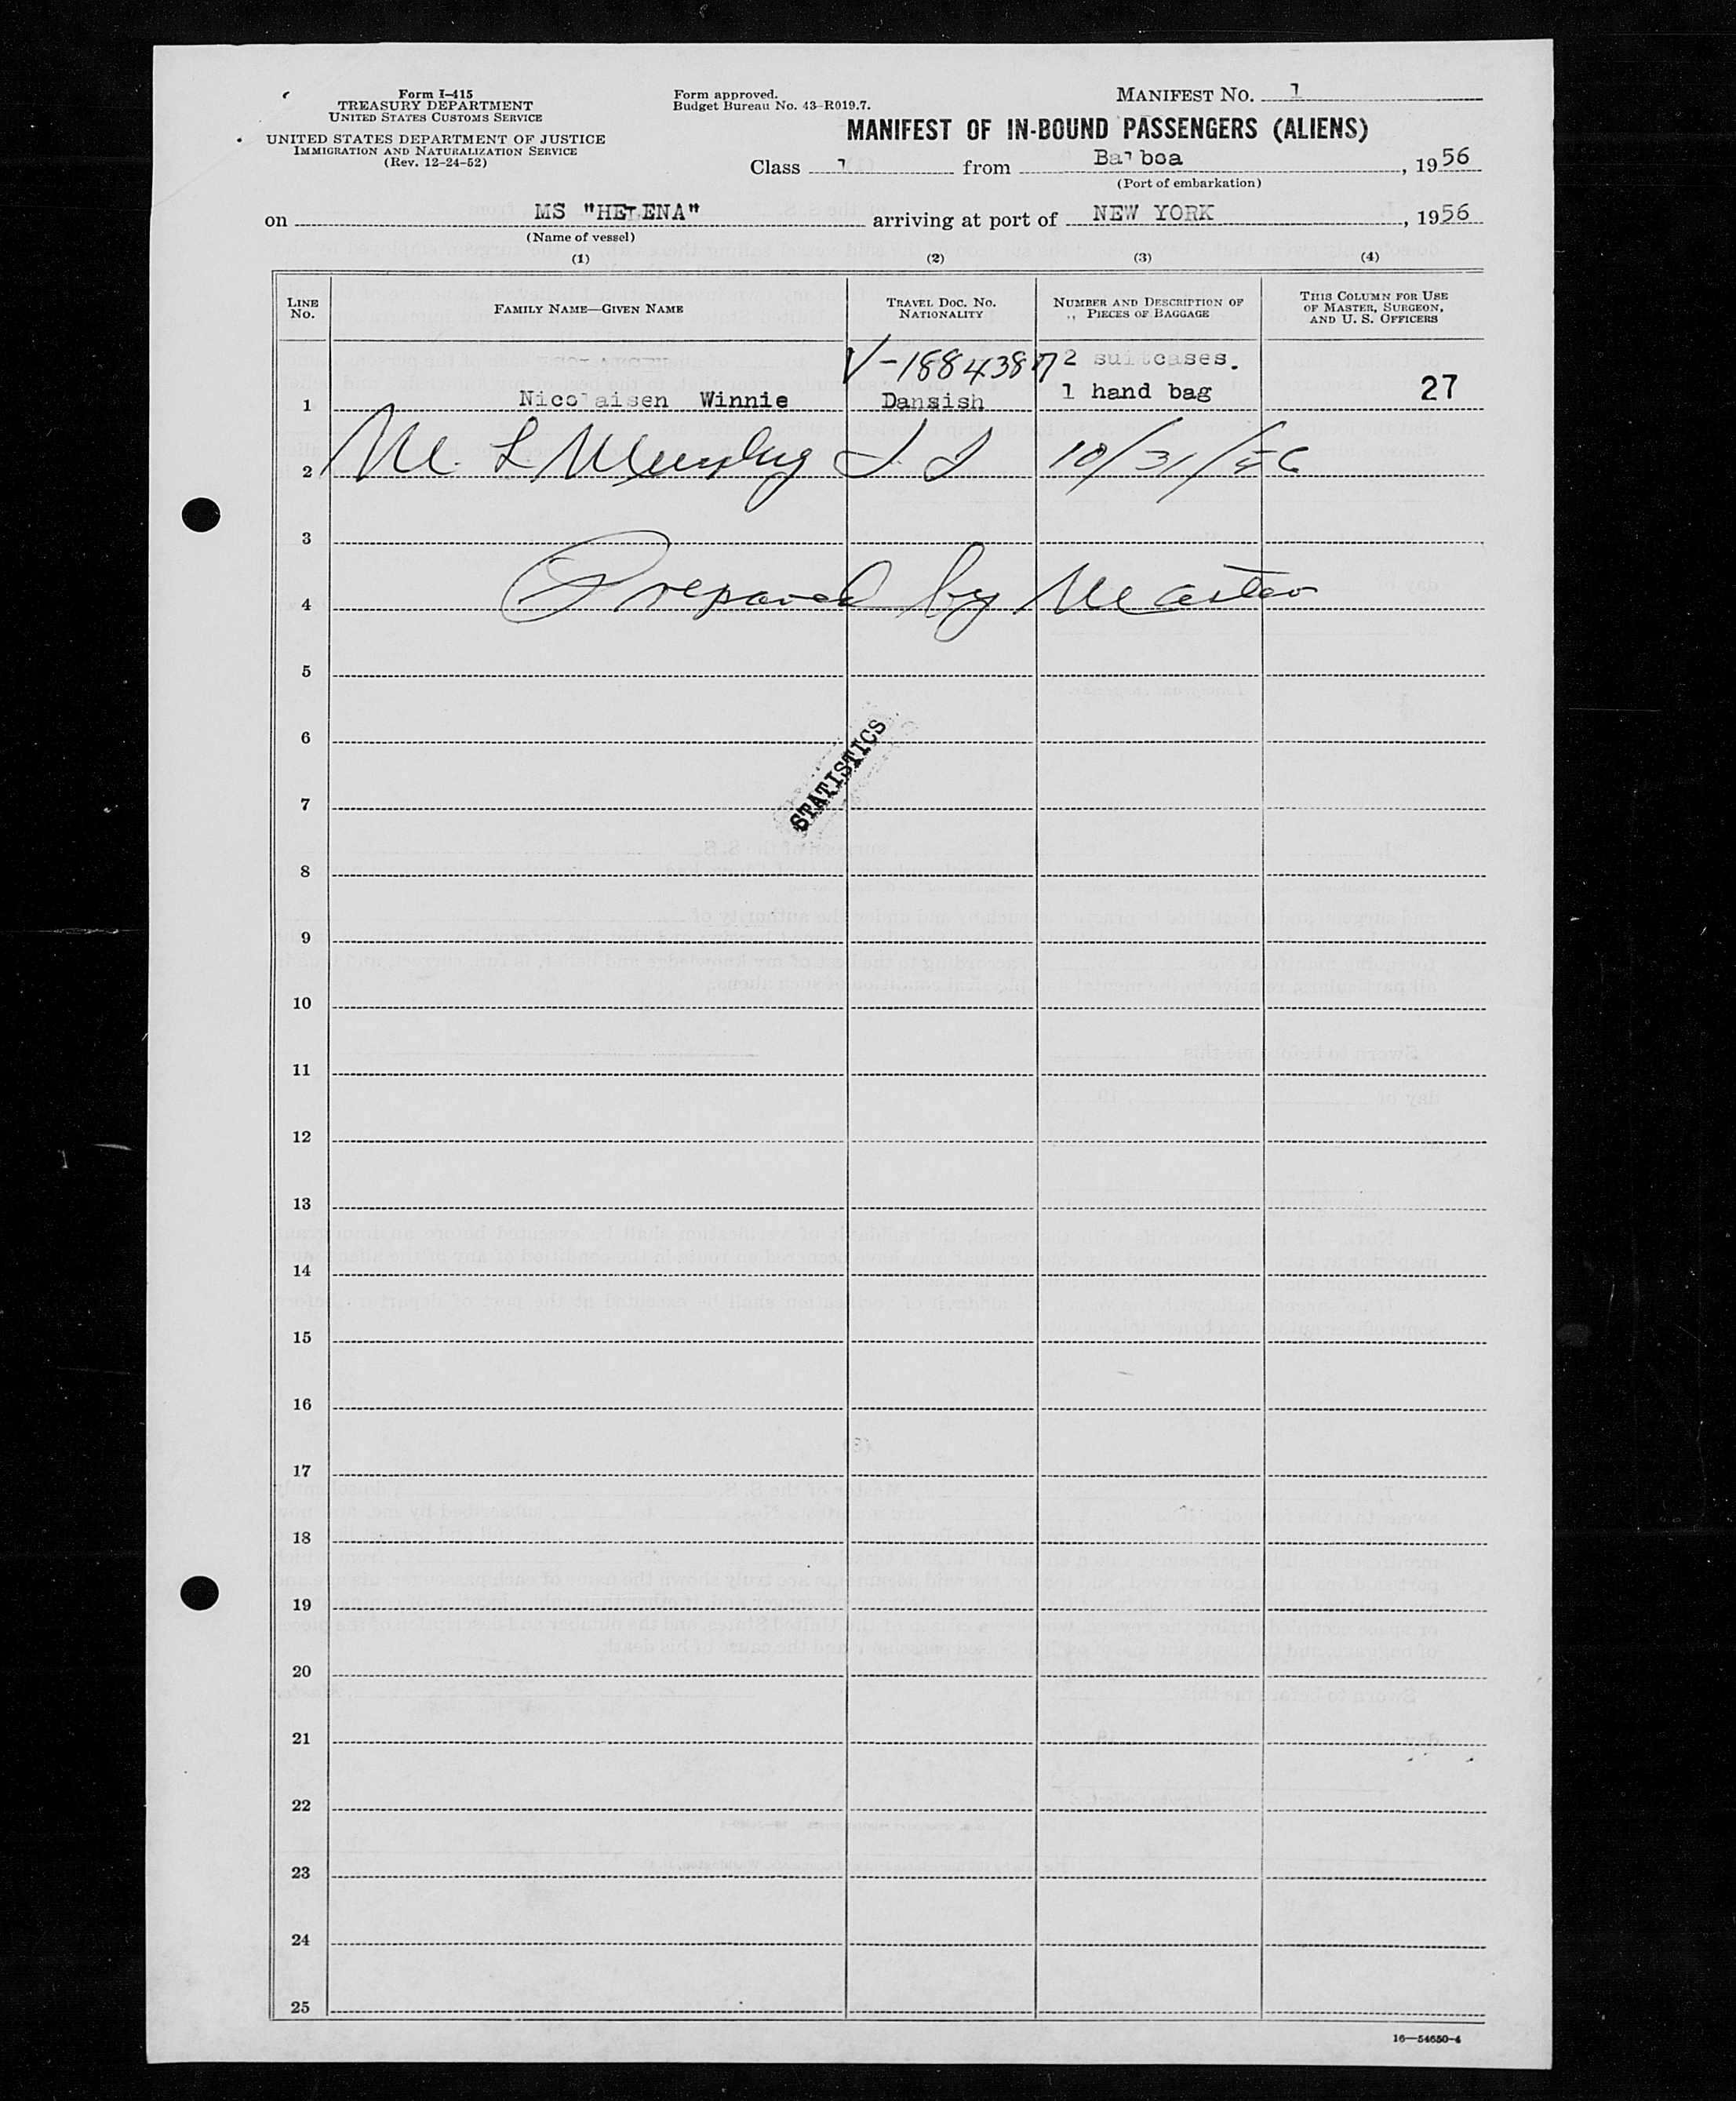 Form I-415
TREASURY DEPARTMENT
UNITED STATES CUSTOMS SERVICE
UNITED STATES DEPARTMENT OF JUSTICE
IMMIGRATION AND NATURALIZATION SERVICE
(Rev. 12-24-52)
Form approved.
Budget Bureau No. 43-R019.7.
MANIFEST NO. 1
MANIFEST OF IN-BOUND PASSENGERS (ALIENS)
Class 1 from Balboa, 1956
(Port of embarkation)
on MS "HELENA" arriving at port of NEW YORK, 1956
(Name of vessel)
(1) (2) (3) (4)
LINE No.
FAMILY NAME—GIVEN NAME
TRAVEL DOC. NO. NATIONALITY
NUMBER AND DESCRIPTION OF PIECES OF BAGGAGE
THIS COLUMN FOR USE OF MASTER, SURGEON, AND U. S. OFFICERS
V-1884387 2 suitcases.
1 Nicolaisen Winnie Dansish 1 hand bag 27
2 M. L 10/31/56
3
4 Prepared by Master
5
STATISTICS
6
7
8
9
10
11
12
13
14
15
16
17
18
19
20
21
22
23
24
25
16—54650-4